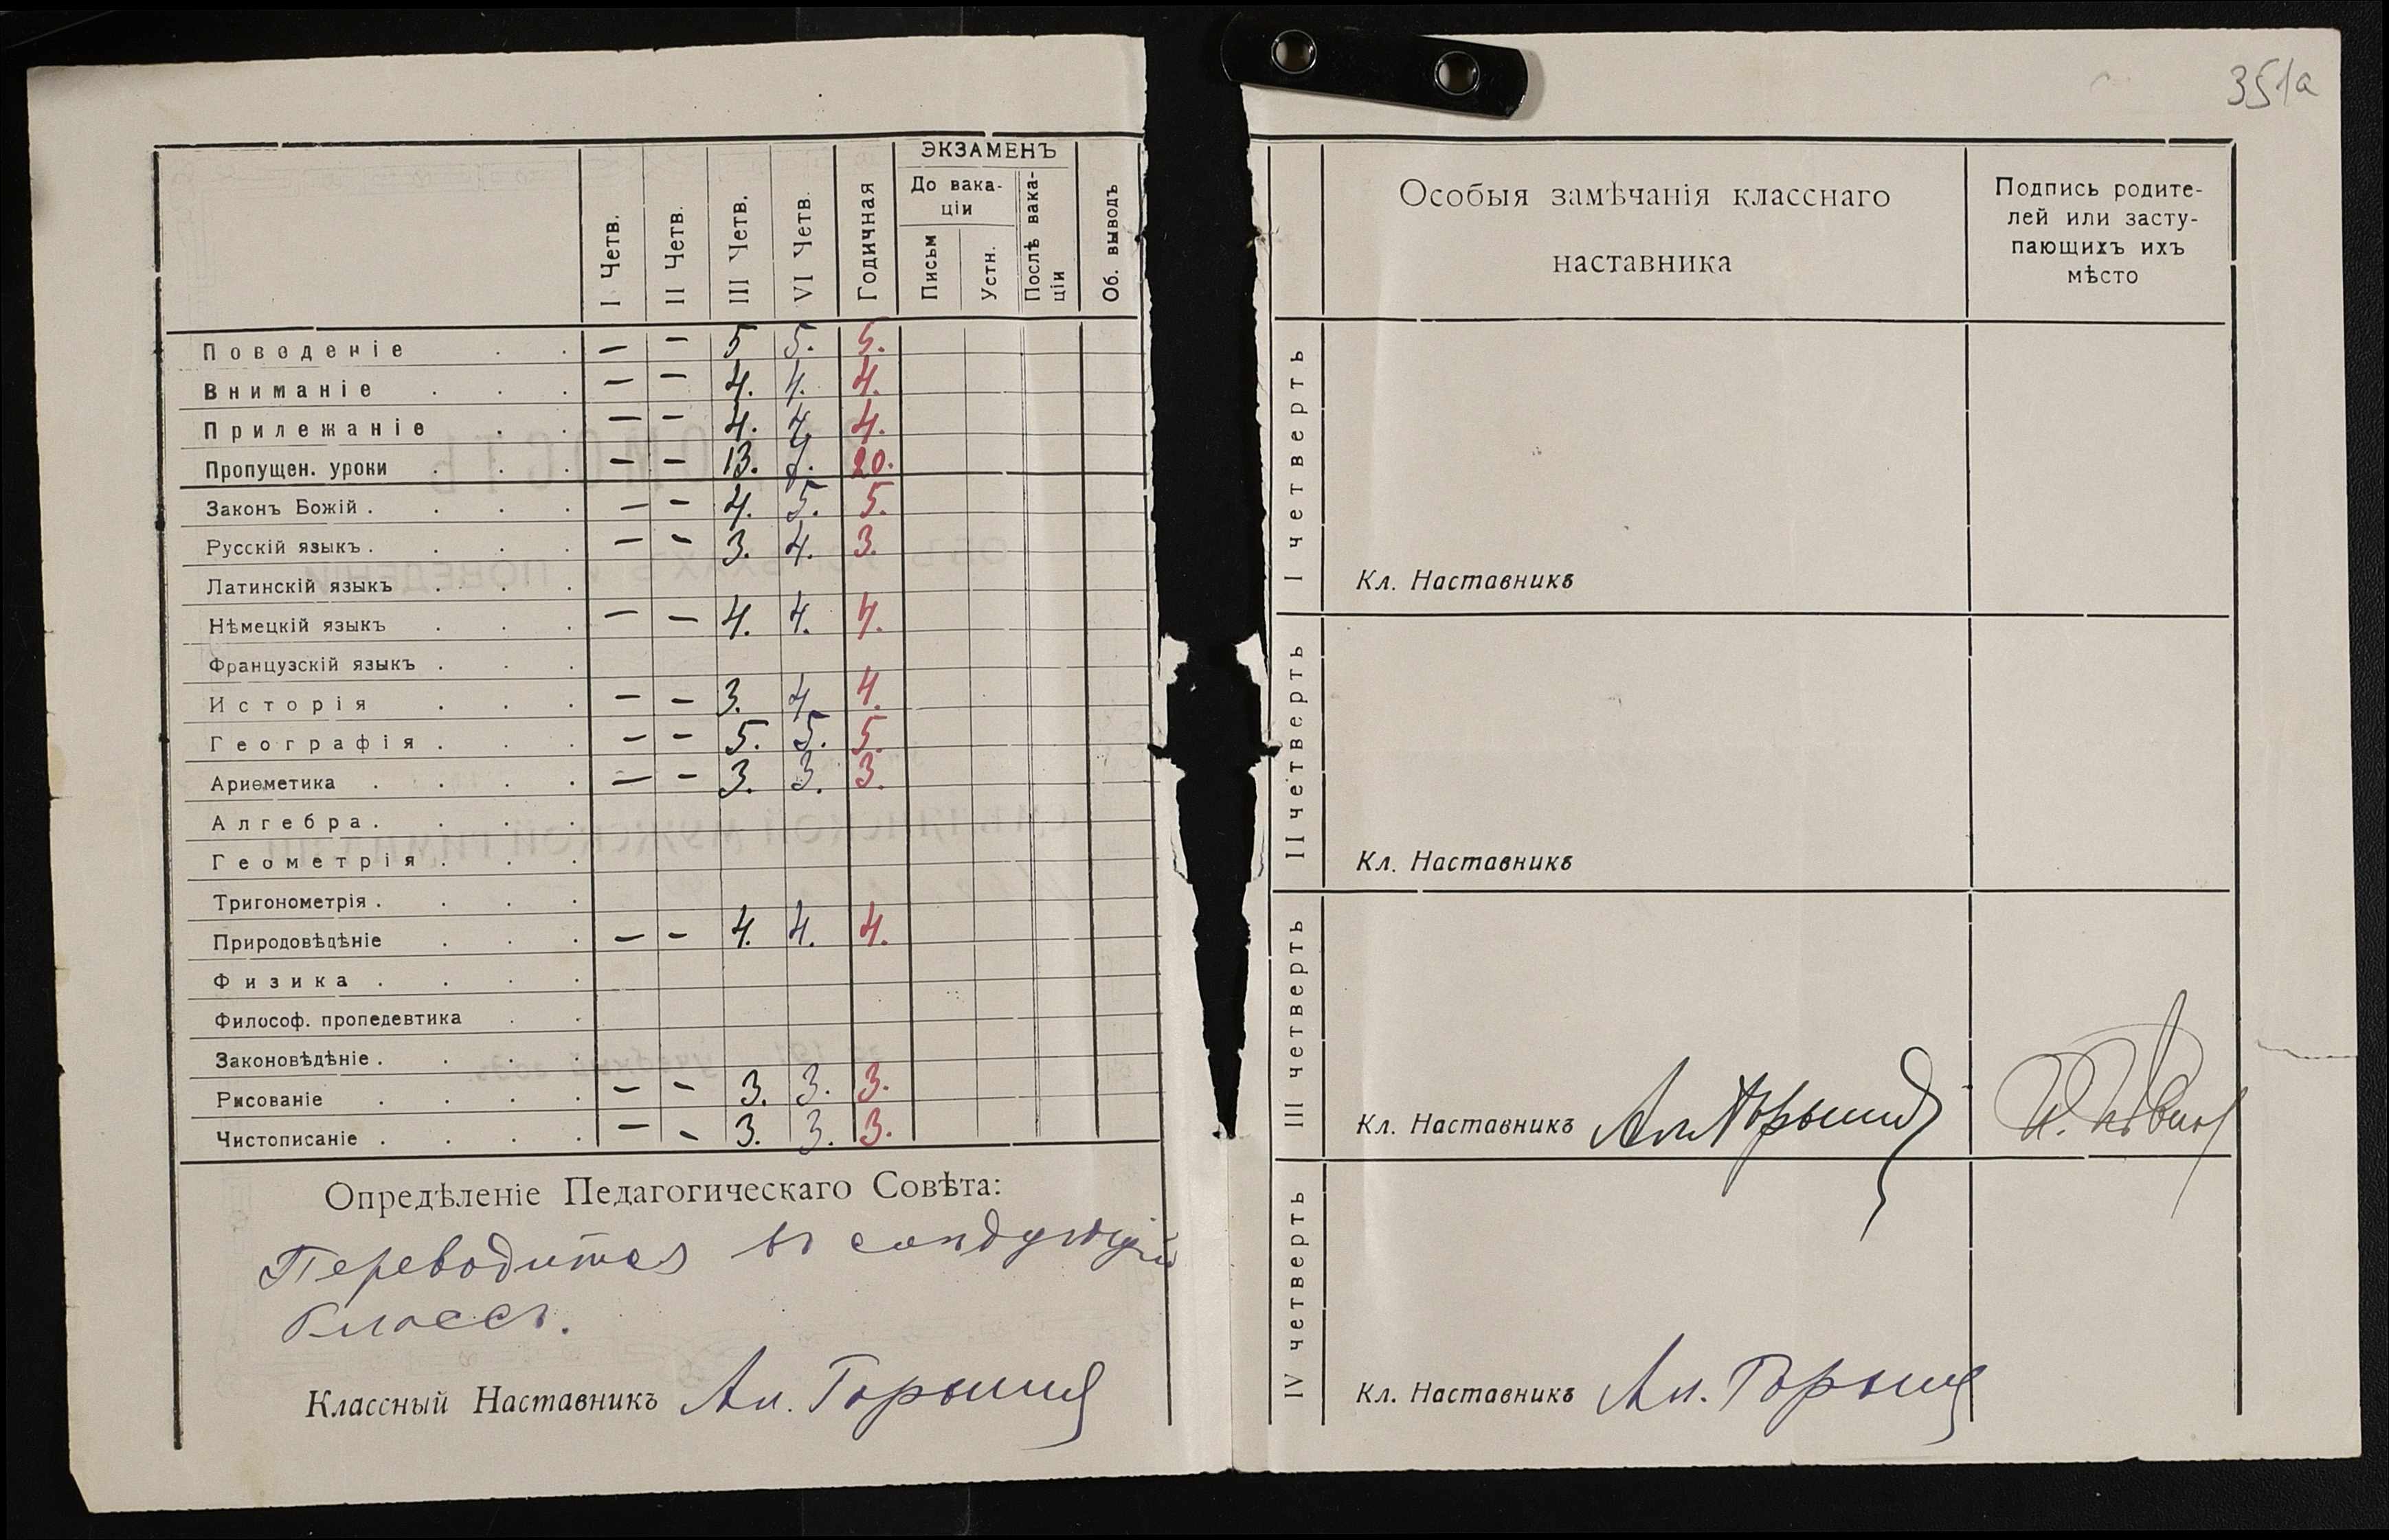 351а
ЭКЗАМЕНЪ
До вака-
ціи
I Четв.
II Четв.
III Четв.
VI Четв.
Годичная
Письм
Устн.
Послѣ вака-
ціи
Об. выводъ
Поведеніе . . — — 5 5. 5.
Вниманіе . . . — — 4. 4. 4.
Прилежаніе . . — — 4. 4. 4.
Пропущен. уроки . . . — — 13. 7. 20.
Законъ Божій . . . . — — 4. 5. 5.
Русскій языкъ . . . . — — 3. 4. 3.
Латинскій языкъ . . .
Нѣмецкій языкъ . . . — — 4. 4. 4.
Французскій языкъ . . .
Исторія . . . — — 3. 4. 4.
Географія . . . — — 5. 5. 5.
Ариѳметика . . . . — — 3. 3. 3.
Алгебра . . . .
Геометрія . . .
Тригонометрія . . . .
Природовѣдѣніе . . . — — 4. 4. 4.
Физика . . . .
Философ. пропедевтика . .
Законовѣдѣніе . . . .
Рисованіе . . . . — — 3. 3. 3.
Чистописаніе . . . . — — 3. 3. 3.
Опредѣленіе Педагогическаго Совѣта:
Переводится въ слѣдующій
классъ.
Классный Наставникъ Ал. Горшин
Особыя замѣчанія класснаго
наставника
Подпись родите-
лей или засту-
пающихъ ихъ
мѣсто
I четверть
Кл. Наставникъ
II четверть
Кл. Наставникъ
III четверть
Кл. Наставникъ
IV четверть
Кл. Наставникъ Ал. Горшин